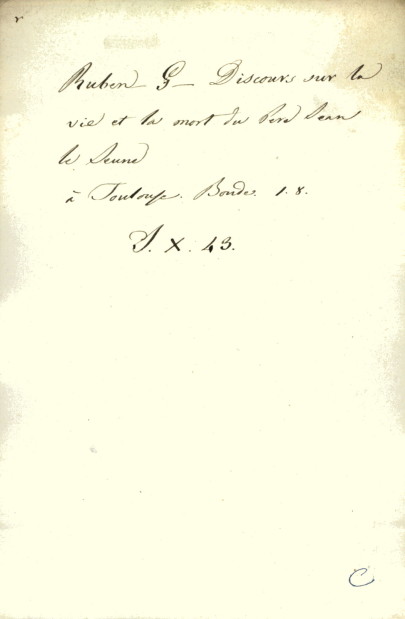 r
Ruben G – Discours sur la
vie et la mort du Pere Jean
le Jeune
à Toulouse. Boude. 1. 8.
J. X. 43.
C